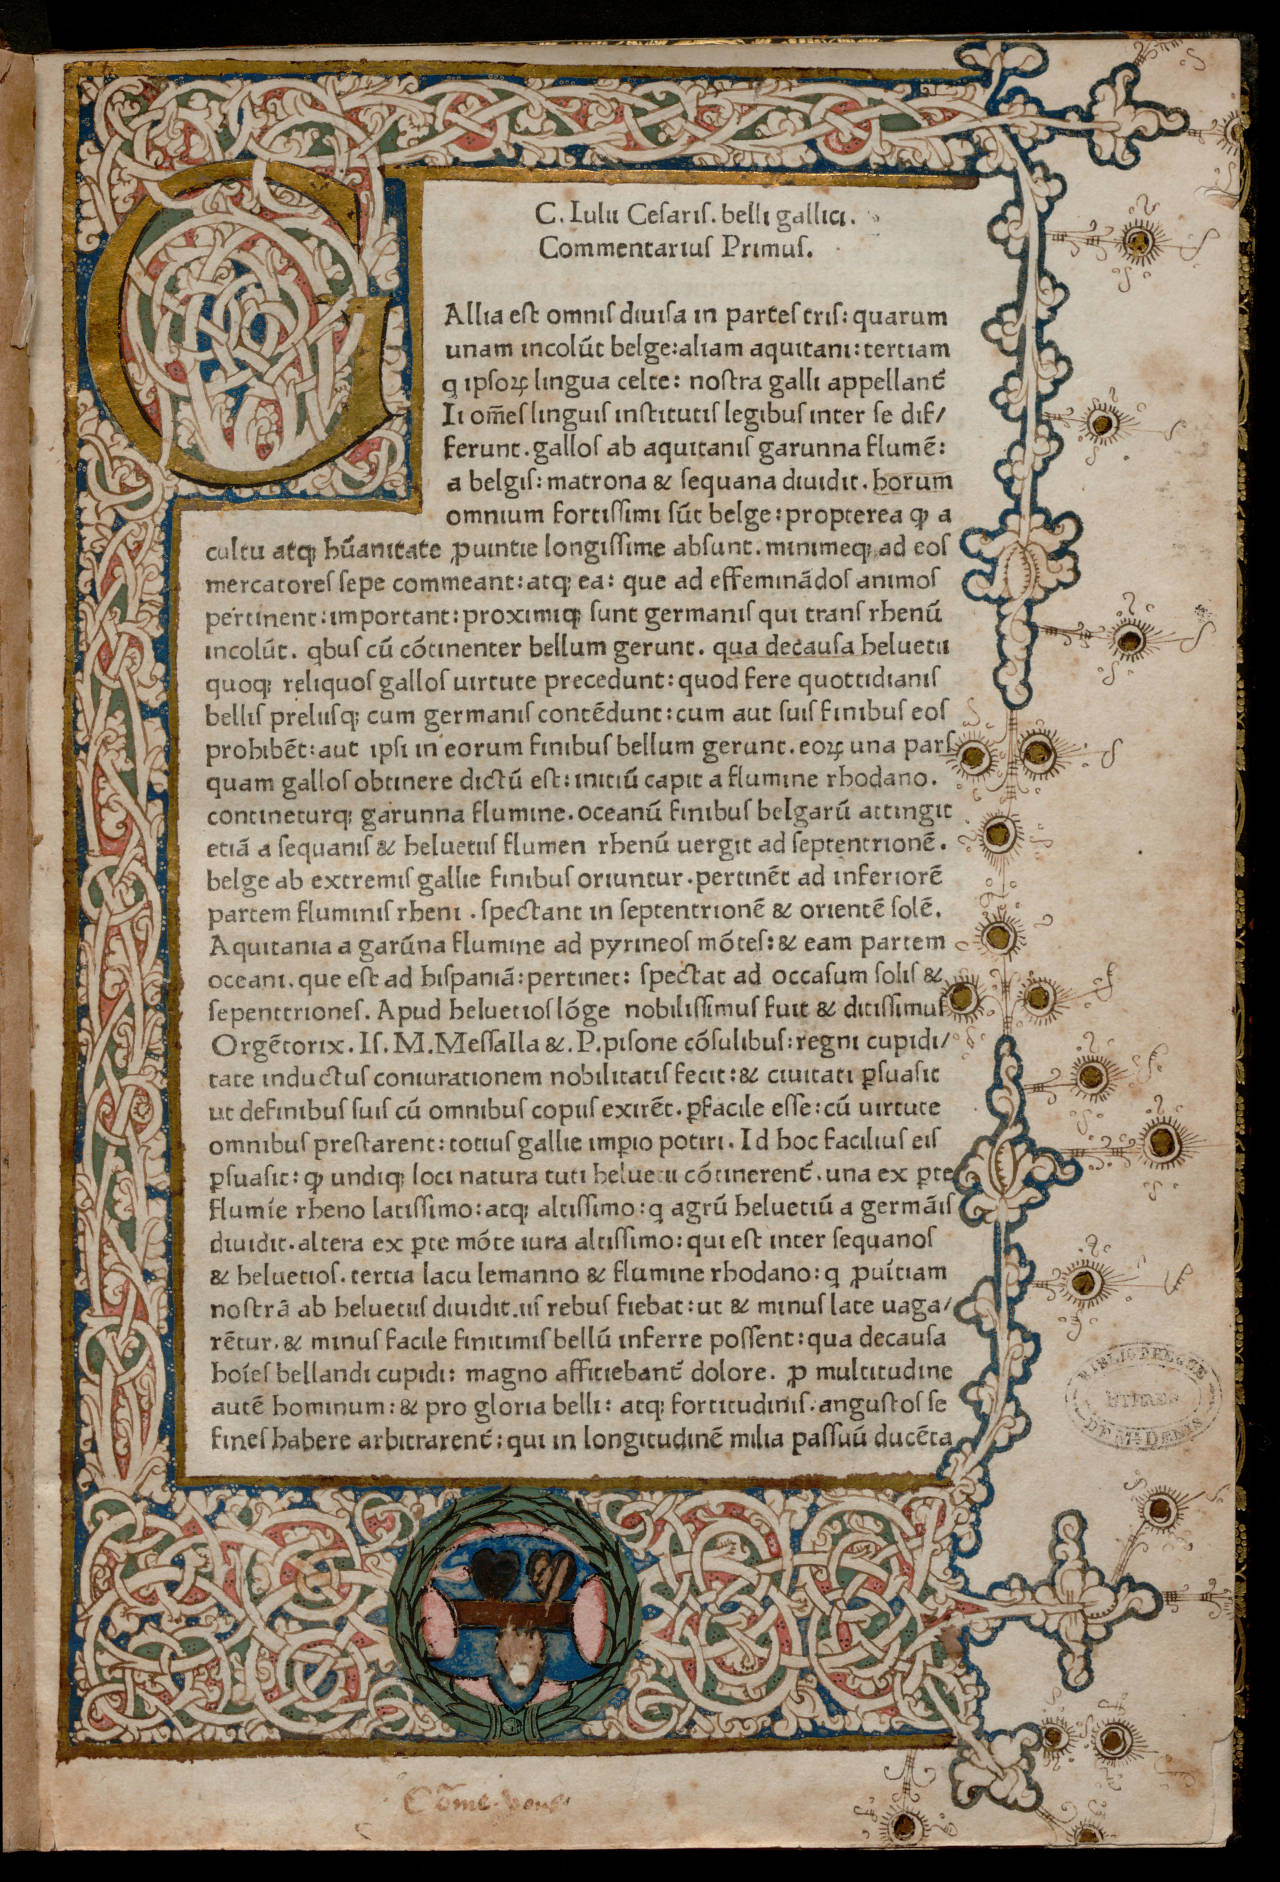 C. Iulii Cesarıſ. belli gallici.
Commentariuſ Primuſ.
G
Allia eſt omniſ diuiſa in parteſ triſ: quarum
unam incolūt belge: aliam aquitani: tertiam
q ipſoꝝ lingua celte: noſtra galli appellant̄
Ii om̄eſ linguiſ inſtitutiſ legibuſ inter ſe dif/
ferunt. galloſ ab aquitaniſ garunna flumē:
a belgiſ: matrona & ſequana diuidit. horum
omnium fortiſſimi ſūt belge: propterea ꝙ a
cultu atqꝫ hūanitate ꝓuintie longiſſime abſunt. minimeqꝫ ad eoſ
mercatoreſ ſepe commeant: atqꝫ ea: que ad effeminādoſ animoſ
pertinent: important: proximiqꝫ ſunt germaniſ qui tranſ rhenū
incolūt. qbuſ cū cōtinenter bellum gerunt. qua decauſa heluetii
quoqꝫ reliquoſ galloſ uirtute precedunt: quod fere quottidianiſ
belliſ preliiſqꝫ cum germaniſ contēdunt: cum aut ſuiſ finibuſ eoſ
prohibēt: aut ipſi in eorum finibuſ bellum gerunt. eoꝝ una parſ
quam galloſ obtinere dictū eſt: initiū capit a flumine rhodano.
contineturqꝫ garunna flumine. oceanū finibuſ belgarū attingit
etiā a ſequaniſ & heluetiiſ flumen rhenū uergit ad ſeptentrionē.
belge ab extremiſ gallie finibuſ oriuntur. pertinēt ad inferiorē
partem fluminiſ rheni. ſpectant in ſeptentrionē & orientē ſolē.
Aquitania a garūna flumine ad pyrineoſ mōteſ: & eam partem
oceani. que eſt ad hiſpaniā: pertinet: ſpectat ad occaſum ſoliſ &
ſepenttrioneſ. Apud heluetioſ lōge nobiliſſimuſ fuit & ditiſſimuſ
Orgētorix. Iſ. M. Meſſalla &. P. piſone cōſulibuſ: regni cupidi/
tate inductuſ coniurationem nobilitatiſ fecit: & ciuitati ꝑſuaſit
ut definibuſ ſuiſ cū omnibuſ copiiſ exirēt. ꝑfacile eſſe: cū uirtute
omnibuſ preſtarent: totiuſ gallie imꝑio potiri. Id hoc faciliuſ eiſ
ꝑſuaſit: ꝙ undiqꝫ loci natura tuti heluetii cōtinerent̄. una ex ꝑte
flumíe rheno latiſſimo: atqꝫ altiſſimo: q agrū heluetiū a germāiſ
diuidit. altera ex ꝑte mōte iura altiſſimo: qui eſt inter ſequanoſ
& heluetioſ. tertia lacu lemanno & flumine rhodano: q ꝓuítiam
noſtrā ab heluetiiſ diuidit. iiſ rebuſ fiebat: ut & minuſ late uaga/
rētur. & minuſ facile finitimiſ bellū inferre poſſent: qua decauſa
hoíeſ bellandi cupidi: magno afficiebant̄ dolore. ꝓ multitudine
autē hominum: & pro gloria belli: atqꝫ fortitudiniſ. anguſtoſ ſe
fineſ habere arbitrarent̄: qui in longitudinē milia paſſuū ducēta
BIBLIOTHEQUE
DE Mr. DAENS